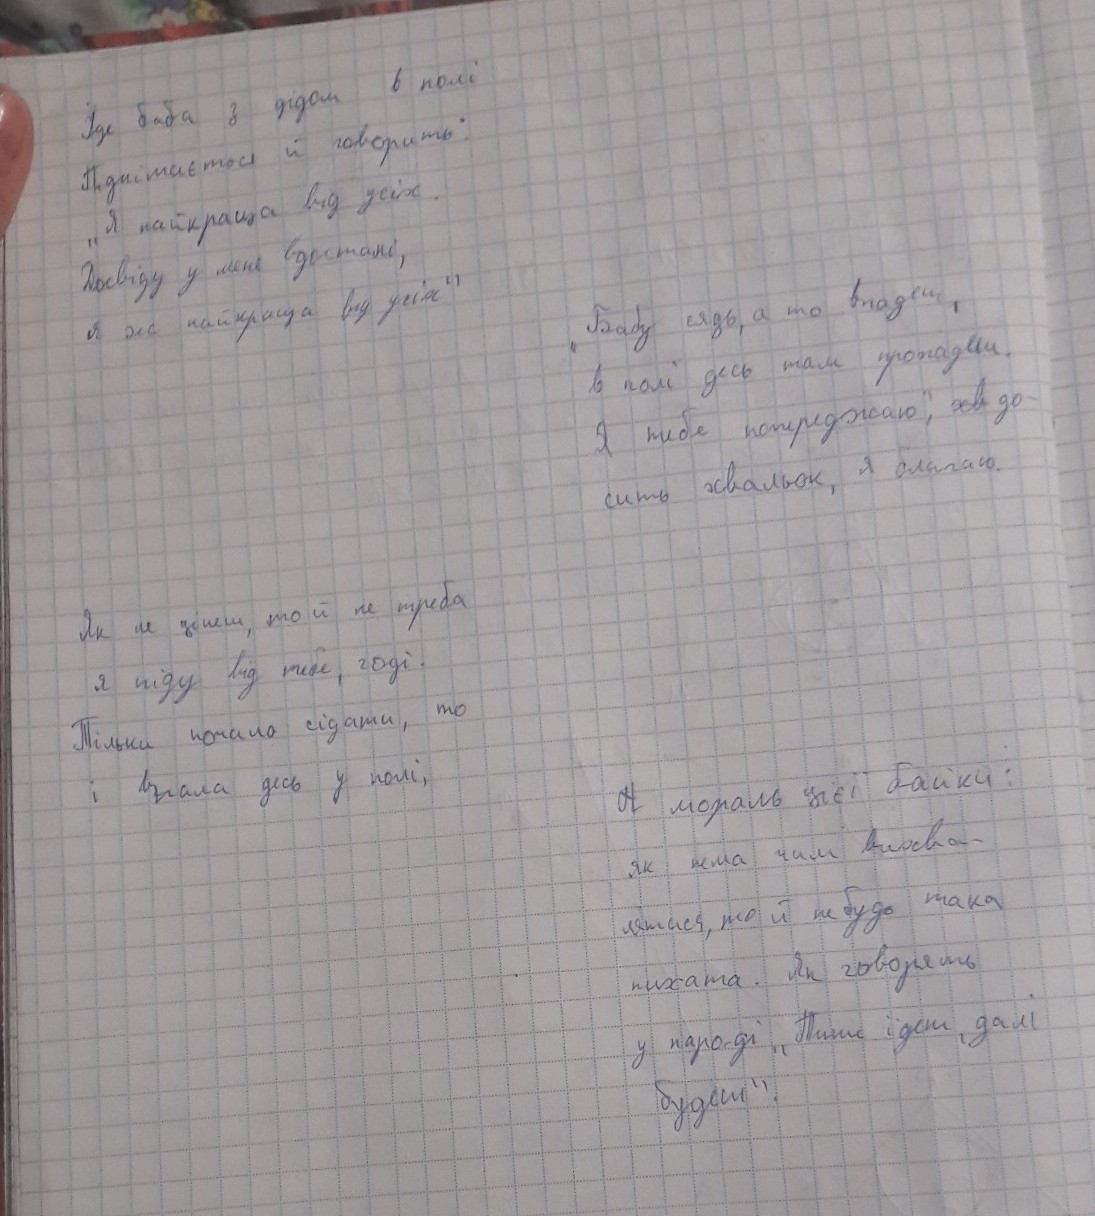 Їде баба з дідом в полі
Піднімається й говорить:
„Я найкраща від усіх.
Досвіду у мене вдосталі,
я же найкраща від усіх"
„Бабу сядь, а то впадеш,
в полі десь там пропадеш.
Я тебе попереджаю", хв до-
сить хвальок, я благаю.
Як не ціниш, то й не треба
я піду від тебе, годі.
Тільки почала сідати, то
і впала десь у полі,
А мораль цієї байки:
як нема чим вихва-
лятися, то й не будь така
пихата. Як говорять
у народі „Тише їдеш, далі
будеш".